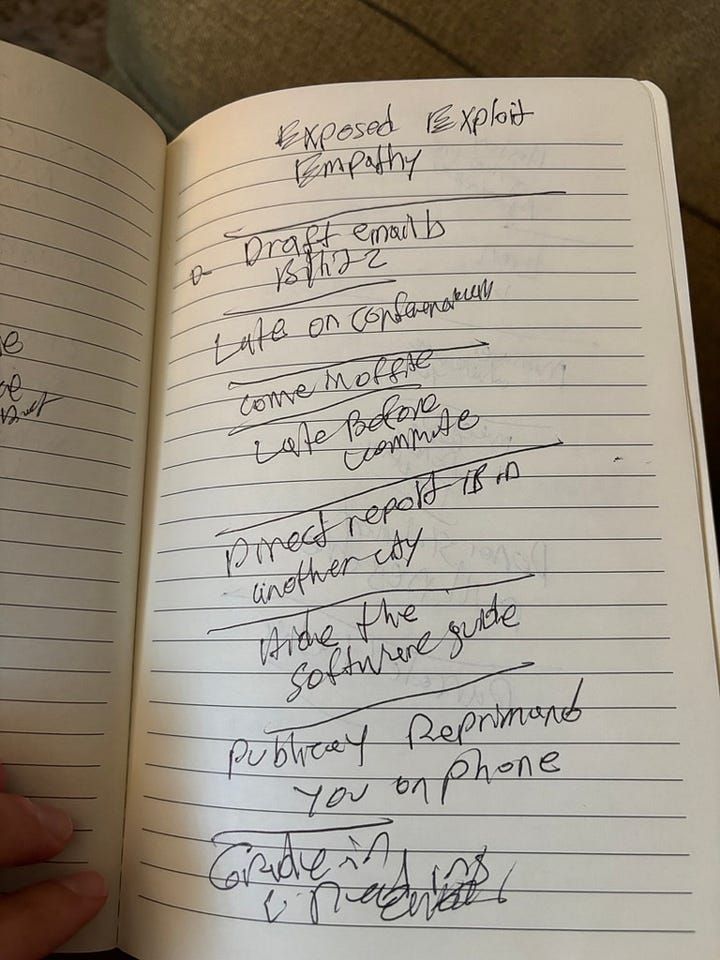 Exposed Exploit
Empathy
Draft email
Late on conference call
come in office
Late Before
commute
Direct report is in
another city
Hide the
software guide
Publicay Reprimand
you on phone
Grade in